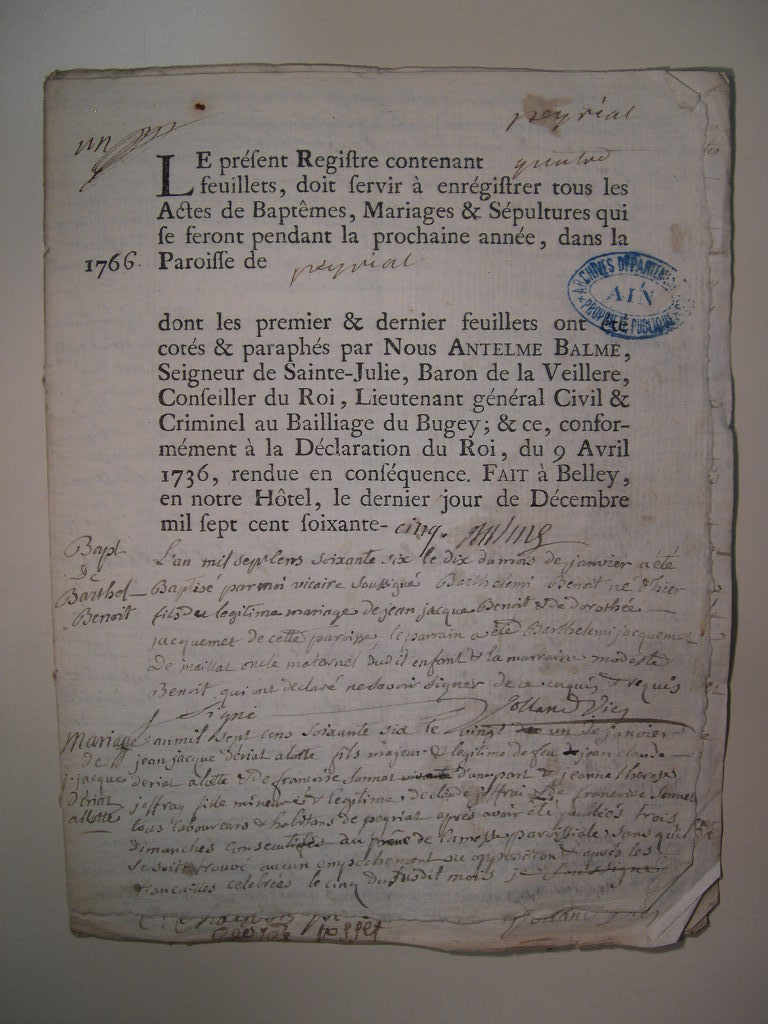 un
peyrial
LE préſent Regiſtre contenant quatre
feuillets, doit ſervir à enrégiſtrer tous les
Actes de Baptêmes, Mariages & Sépultures qui
ſe feront pendant la prochaine année, dans la
1766. Paroiſſe de peyrial
ARCHIVES DÉPARTEMENTALES
AIN
PROPRIÉTÉ PUBLIQUE
dont les premier & dernier feuillets ont été
cotés & paraphés par Nous ANTELME BALME,
Seigneur de Sainte-Julie, Baron de la Veillere,
Conſeiller du Roi, Lieutenant général Civil &
Criminel au Bailliage du Bugey; & ce, confor-
mément à la Déclaration du Roi, du 9 Avril
1736, rendue en conſéquence. FAIT à Belley,
en notre Hôtel, le dernier jour de Décembre
mil ſept cent ſoixante- cinq.
Bapt
de
Barthel
Benoit
L'an mil sept cens soixante six le dix du mois de janvier a été
Baptisé par moi vicaire soussigné Barthelemi Benoit né d'hier
fils du legitime mariage de jean jacque Benoit & de dorothée
jacquemet de cette paroisse, le parrain a été Barthelemi jacquemet
de maillat oncle maternel dudit enfant & la marraine modeste
Benoit qui ont déclaré ne savoir signer de ce enquis & requis
signé jolland vic
Mariage
de
j. jacque
dériat
alotte
an mil sept cens soixante six le vingt un de janvier
jean jacque dériat alotte fils majeur & legitime de feu jean claude
dériat alotte & de francoise sonnet d'une part & jeanne therese
jeffrai fille mineure & legitime de claude jeffrai & de francoise sonnet
tous laboureurs & habitans de peyriat après avoir été publiés trois
dimanches consecutifs au prône de la messe paroissiale sans qu'il
se soit trouvé aucun empechement ou opposition & après les
fiancailles celebrées le cinq du susdit mois je soussigné